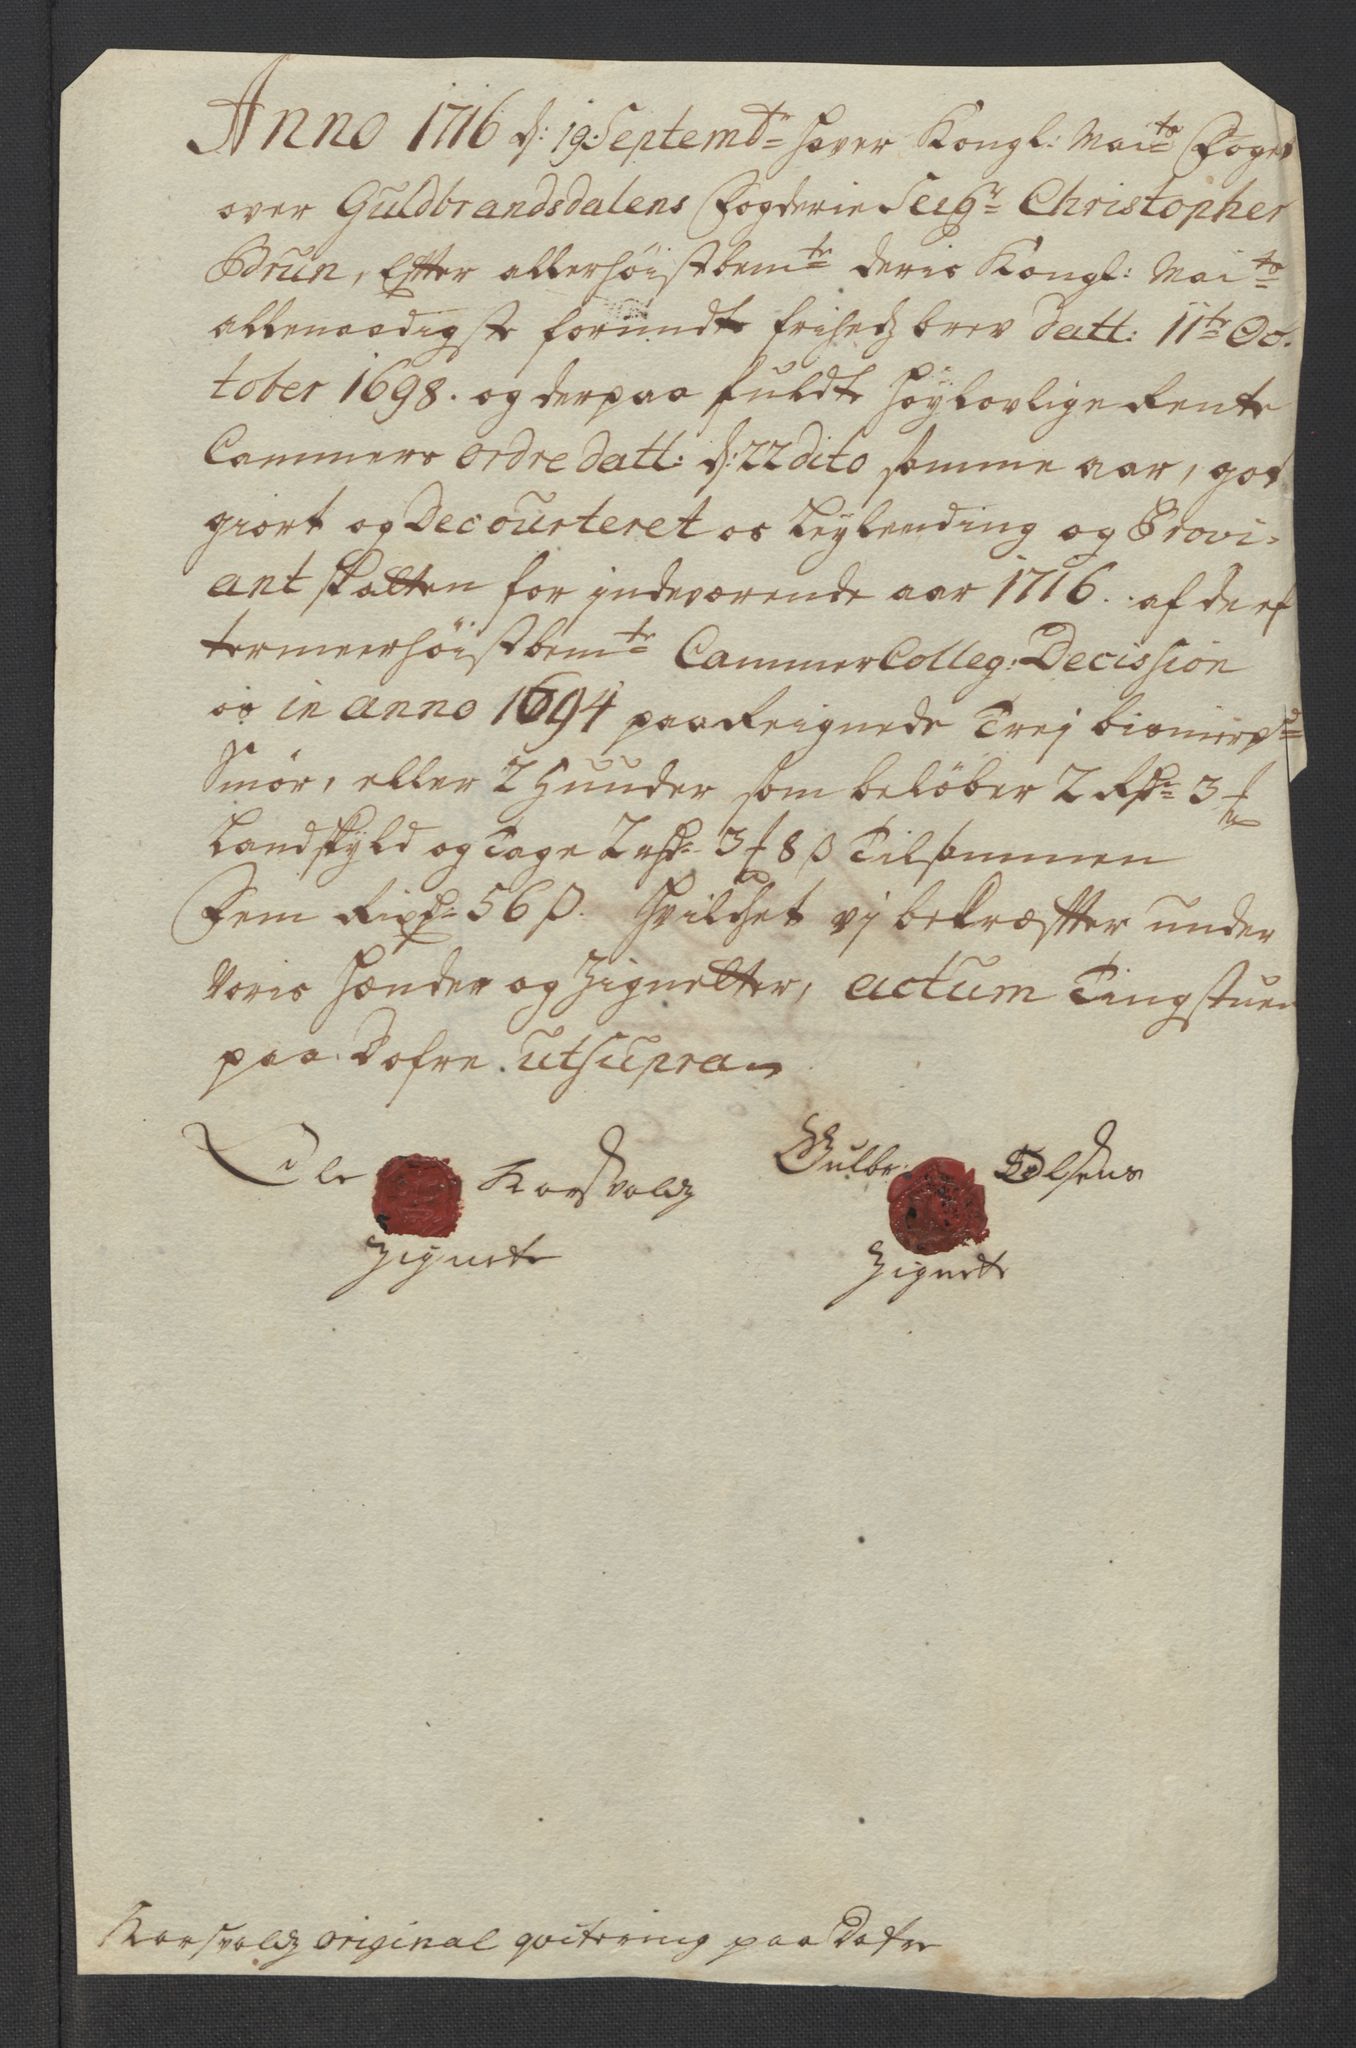 Anno 1716 d: 19: Septembr hafver Kongl: Maits Foget
over Guldbrandsdalens Fogderie Seigr Christopher
Brun, Efter allerhöistbemte deris Kongl: Maits
allernaadigste forundte friheds brev datt: 11te Oc-
tober 1698. og derpaa fuldte Höylovlige Rente
Cammers ordre datt: d: 22 dito samme aar, got
giort og Decourteret os Leylending og Provi-
ant skatten for indeværende aar 1716. af de ef
termeerhöistbemte Cammer Colleg: Decission
os in anno 1694 paaReignede Trej
Smör, eller 2 Huuder som belöber 2 Rdr 3
Landskyld og Tage 2 rdr 3 8 β Tilsammen
Fem Rixdr 56 β. Hvilchet vj bekræffter under
Voris Hænder og Zignetter, actum Tingstuen
paa Dofre. ut supra
Ole Korsvolds
Zignete
Gulbr: Olsens
Zignete
Korsvolds original qvitering paa Dofre